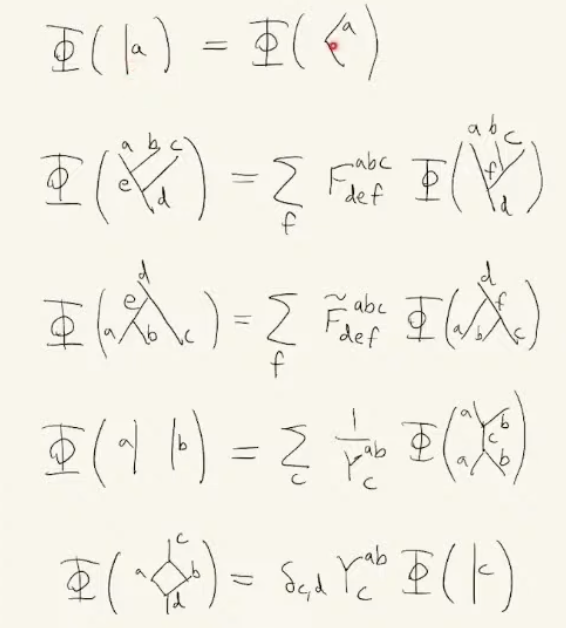 Φ( | a ) = Φ( ⟨ a )
Φ( a b c e d ) = Σ_f F^{abc}_{def} Φ( a b c f d )
Φ( d e a b c ) = Σ_f F̃^{abc}_{def} Φ( d f a b c )
Φ( a | | b ) = Σ_c 1/Y^{ab}_c Φ( a b c a b )
Φ( c a b d ) = δ_{c,d} Y^{ab}_c Φ( | c )